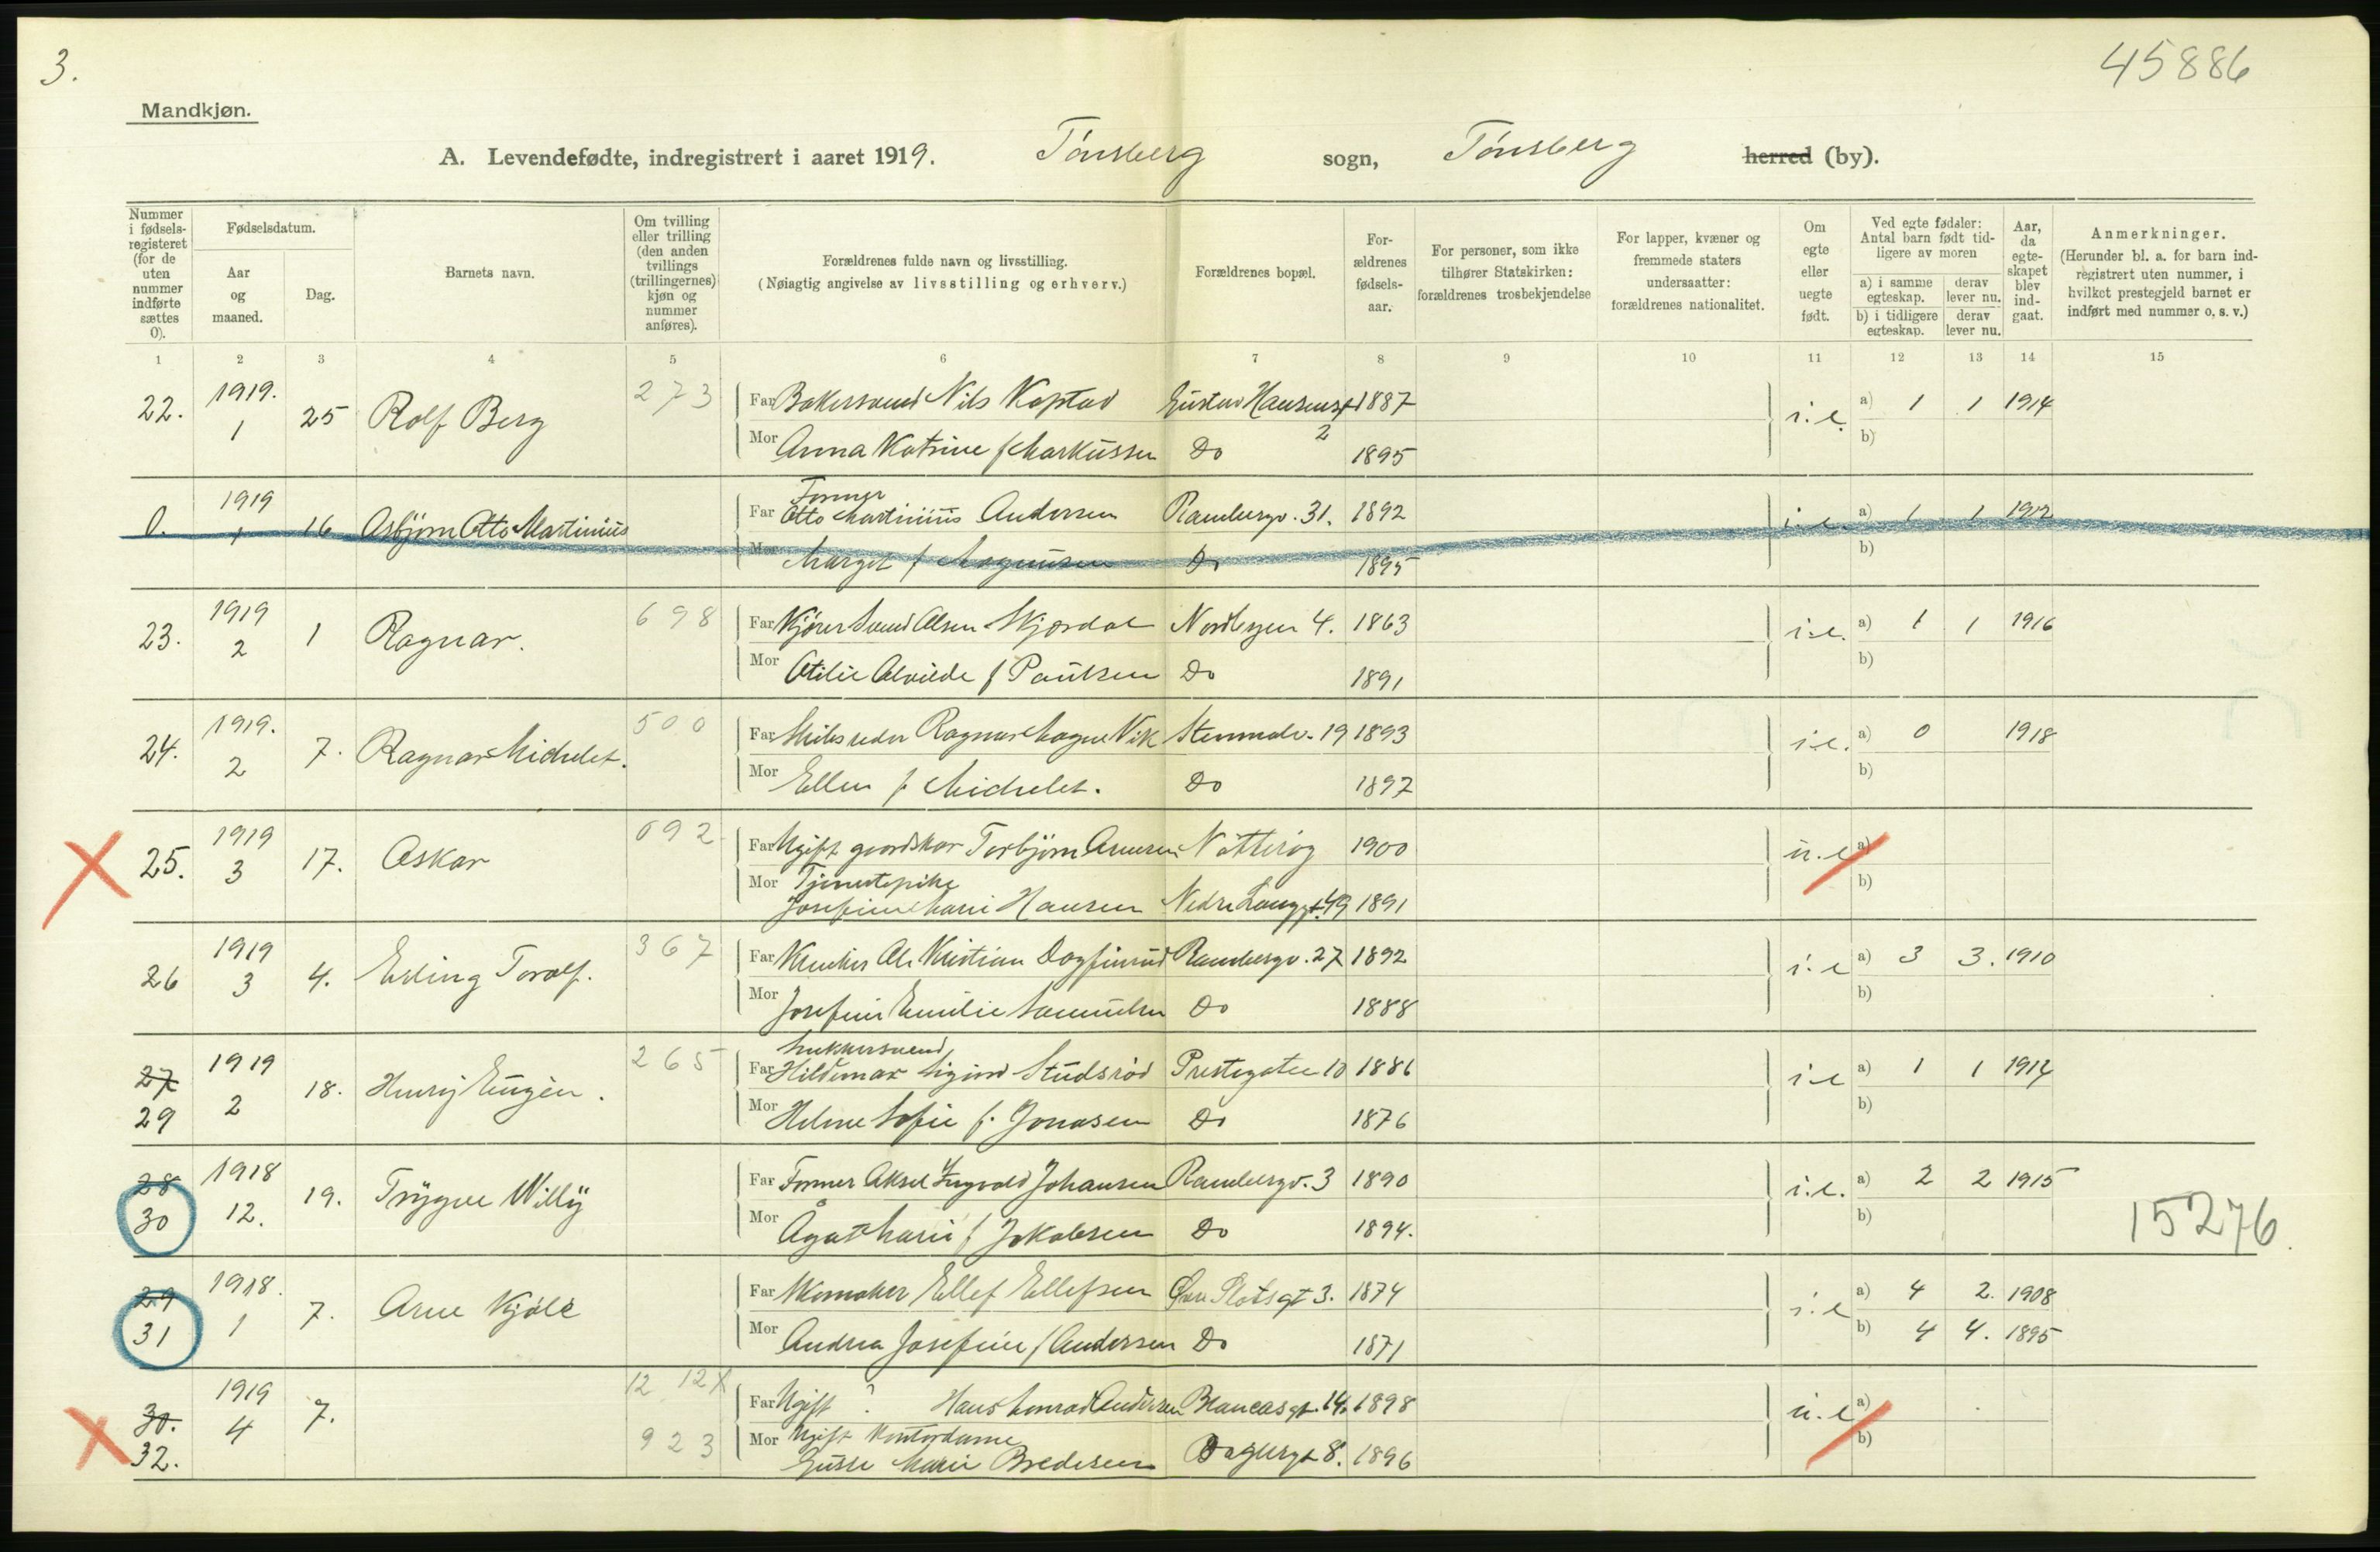 3.
45886
Mandkjøn.
A. Levendefødte, indregistrert i aaret 1919. Tønsberg sogn, Tønsberg herred (by).
Nummer i fødsels-registeret (for de uten nummer indførte sættes 0).
Fødselsdatum.
Aar og maaned.
Dag.
Barnets navn.
Om tvilling eller trilling (den anden tvillings (trillingernes) kjøn og nummer anføres).
Forældrenes fulde navn og livsstilling.
(Nøiagtig angivelse av livsstilling og erhverv.)
Forældrenes bopæl.
For-ældrenes fødsels-aar.
For personer, som ikke tilhører Statskirken: forældrenes trosbekjendelse
For lapper, kvæner og fremmede staters undersaatter: forældrenes nationalitet.
Om egte eller uegte født.
Ved egte fødsler: Antal barn født tid-ligere av moren
a) i samme egteskap.
derav lever nu.
b) i tidligere egteskap.
derav lever nu.
Aar, da egte-skapet blev ind-gaat.
Anmerkninger.
(Herunder bl. a. for barn ind-registrert uten nummer, i hvilket prestegjeld barnet er indført med nummer o. s. v.)
1 2 3 4 5 6 7 8 9 10 11 12 13 14 15
22. 1919. 1 25 Rolf Berg 273 Far Bakersvend Nils Kopstad Gustav Hansensgt 2 1887 i.e. a) 1 1 1914
Mor Anna Katrine f Markussen Do 1895 b)
0. 1919 1 16 Asbjørn Otto Martinius Far Former Otto Martinius Andersen Rambergv. 31. 1892 i.e. a) 1 1 1912
Mor Margot f Magnusen Do 1895 b)
23. 1919 2 1 Ragnar. 698 Far Kjører Svend Olsen Skjørdal Nordbyen 4. 1863 i.e. a) 1 1 1916
Mor Otilie Alvilde f Paulsen Do 1891 b)
24. 1919. 2 7. Ragnar Michelet. 500 Far Skibsreder Ragnar Magne Vik Stenmalv. 19 1893 i.e. a) 0 1918
Mor Ellen f. Michelet. Do 1897 b)
25. 1919 3 17. Oskar 692 Far Ugift gaardskar Torbjørn Arnesen Nøtterøy 1900 u.e a)
Mor Tjenestepike Josefine Marie Hansen Nedre Langgt. 49 1891 b)
26 1919 3 4. Erling Toralf. 367 Far Ole Kristian Dagfinrud Rambergv. 27 1892 i.e a) 3 3. 1910
Mor Josefine Emilie Samuelsen Do 1888 b)
27 29 1919 2 18. Henry Eugèn. 265 Far Snekkersvend Hildemar Sigurd Studsrød Prestegaten 10 1886 i.e a) 1 1 1914
Mor Helene Sofie f. Jonasen Do 1876 b)
28 30 1918 12. 19. Trygve Willy Far Former Aksel Yngvald Johansen Rambergv. 3 1890 i.e. a) 2 2 1915
Mor Ågat Marie f Jakobsen Do 1894. b)
15276
29 31 1918. 1 7. Arne Kjøle Far Skomaker Ellef Ellefsen Øvre Slotsgt 3. 1874 i.e a) 4 2. 1908
Mor Andrea Josefine f Andersen Do 1871 b) 4 4. 1895
30. 32. 1919 4 7. 12 12 X 923 Far Ugift ? Hans Konrad Andersen Blancasgt. 14. 1898 u.e a)
Mor Ugift Kontordame Gusse Marie Bredesen Dagbergt 8. 1896 b)